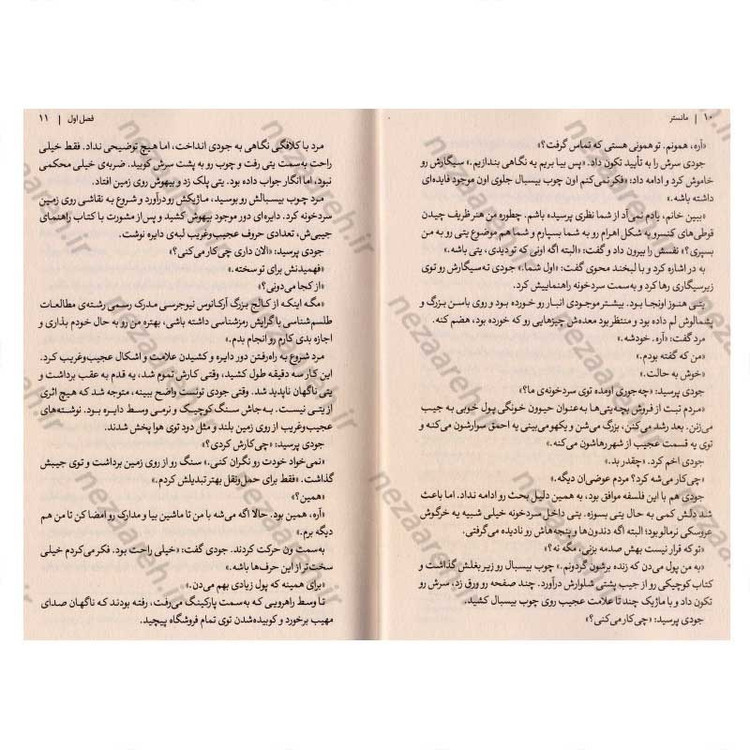 ۱۰ | مانستر
«آره، همونم. تو همونی هستی که تماس گرفت؟»
جودی سرش را به تأیید تکون داد. «پس بیا بریم یه نگاهی بندازیم.» سیگارش رو
خاموش کرد و ادامه داد: «فکر نمی‌کنم اون چوب بیسبال جلوی اون موجود فایده‌ای
داشته باشه.»
«ببین خانم، یادم نمی‌آد از شما نظری پرسیده باشم. چطوره من هنر ظریف چیدن
قوطی‌های کنسرو به شکل اهرام رو به شما بسپارم و شما هم موضوع یتی رو به من
بسپری؟» نفسش را بیرون داد و گفت: «البته اگه اونی که تو دیدی، یتی باشه.»
به در اشاره کرد و با لبخند محوی گفت: «اول شما.» جودی ته‌سیگارش رو توی
زیرسیگاری رها کرد و به‌سمت سردخونه راهنماییش کرد.
یتی هنوز اونجا بود. بیشتر موجودی انبار رو خورده بود و روی باسن بزرگ و
پشمالوش لم داده بود و منتظر بود معده‌ش چیزهایی رو که خورده بود، هضم کنه.
مرد گفت: «آره. خودشه.»
«من که گفته بودم.»
«خوش به حالت.»
جودی پرسید: «چه‌جوری اومده توی سردخونه‌ی ما؟»
«مردم تبت از فروش بچه‌یتی‌ها به‌عنوان حیوون خونگی پول خوبی به جیب
می‌زنن. بعد رشد می‌کنن، بزرگ می‌شن و یکهو می‌بینی یه احمق سوارشون می‌کنه و
توی یه قسمت عجیب از شهر رهاشون می‌کنه.»
جودی اخم کرد. «چقدر بد.»
«چی‌کار می‌شه کرد؟ مردم عوضی‌ان دیگه.»
جودی هم با این فلسفه موافق بود، به همین دلیل بحث رو ادامه نداد. اما باعث
شد دلش کمی به حال یتی بسوزه. یتی داخل سردخونه خیلی شبیه یه خرگوش
عروسکی نرمالو بود؛ البته اگه دندون‌ها و پنجه‌هاش رو نادیده می‌گرفتی.
«تو که قرار نیست بهش صدمه بزنی، مگه نه؟»
«به من پول می‌دن که زنده برشون گردونم.» چوب بیسبال رو زیر بغلش گذاشت و
کتاب کوچیکی رو از جیب پشتی شلوارش درآورد. چند صفحه رو ورق زد، سرش رو
تکون داد و با ماژیک چند تا علامت عجیب روی چوب بیسبال کشید.
جودی پرسید: «چی‌کار می‌کنی؟»
فصل اول | ۱۱
مرد با کلافگی نگاهی به جودی انداخت، اما هیچ توضیحی نداد. فقط خیلی
راحت به سمت یتی رفت و چوب رو به پشت سرش کوبید. ضربه‌ی خیلی محکمی
نبود، اما انگار جواب داده بود. یتی پلک زد و بیهوش روی زمین افتاد.
مرد چوب بیسبالش رو بوسید، ماژیکش رو درآورد و شروع به نقاشی روی زمین
سردخونه کرد. دایره‌ای دور موجود بیهوش کشید و پس از مشورت با کتاب راهنمای
جیبی‌ش، تعدادی حروف عجیب‌وغریب لبه‌ی دایره نوشت.
جودی پرسید: «الان داری چی‌کار می‌کنی؟»
«فهمیدنش برای تو سخته.»
«از کجا می‌دونی؟»
«مگه اینکه از کالج بزرگ آرکانوس نیوجرسی مدرک رسمی رشته‌ی مطالعات
طلسم‌شناسی با گرایش رمزشناسی داشته باشی، بهتره من رو به حال خودم بذاری و
اجازه بدی کارم رو انجام بدم.»
مرد شروع به راه‌رفتن دور دایره و کشیدن علامت و اشکال عجیب‌وغریب کرد.
این کار سه دقیقه طول کشید، وقتی کارش تموم شد، یه قدم به عقب برداشت و
یتی ناگهان ناپدید شد. وقتی جودی تونست واضح ببینه، متوجه شد که هیچ اثری
از یتی نیست. به‌جاش سنگ کوچیک و نرمی وسط دایره بود. نوشته‌های
عجیب‌وغریب از روی زمین بلند و مثل دود توی هوا پخش شدند.
جودی پرسید: «چی‌کارش کردی؟»
«نمی‌خواد خودت رو نگران کنی.» سنگ رو از روی زمین برداشت و توی جیبش
گذاشت. «فقط برای حمل‌ونقل بهتر تبدیلش کردم.»
«همین؟»
«آره، همین بود. حالا اگه می‌شه با من تا ماشین بیا و مدارک رو امضا کن تا من هم
دیگه برم.»
به‌سمت ون حرکت کردند. جودی گفت: «خیلی راحت بود. فکر می‌کردم خیلی
سخت‌تر از این حرف‌ها باشه.»
«برای همینه که پول زیادی بهم می‌دن.»
تا وسط راهرویی که به‌سمت پارکینگ می‌رفت، رفته بودند که ناگهان صدای
مهیب برخورد و کوبیده‌شدن توی تمام فروشگاه پیچید.
nezaareh.ir